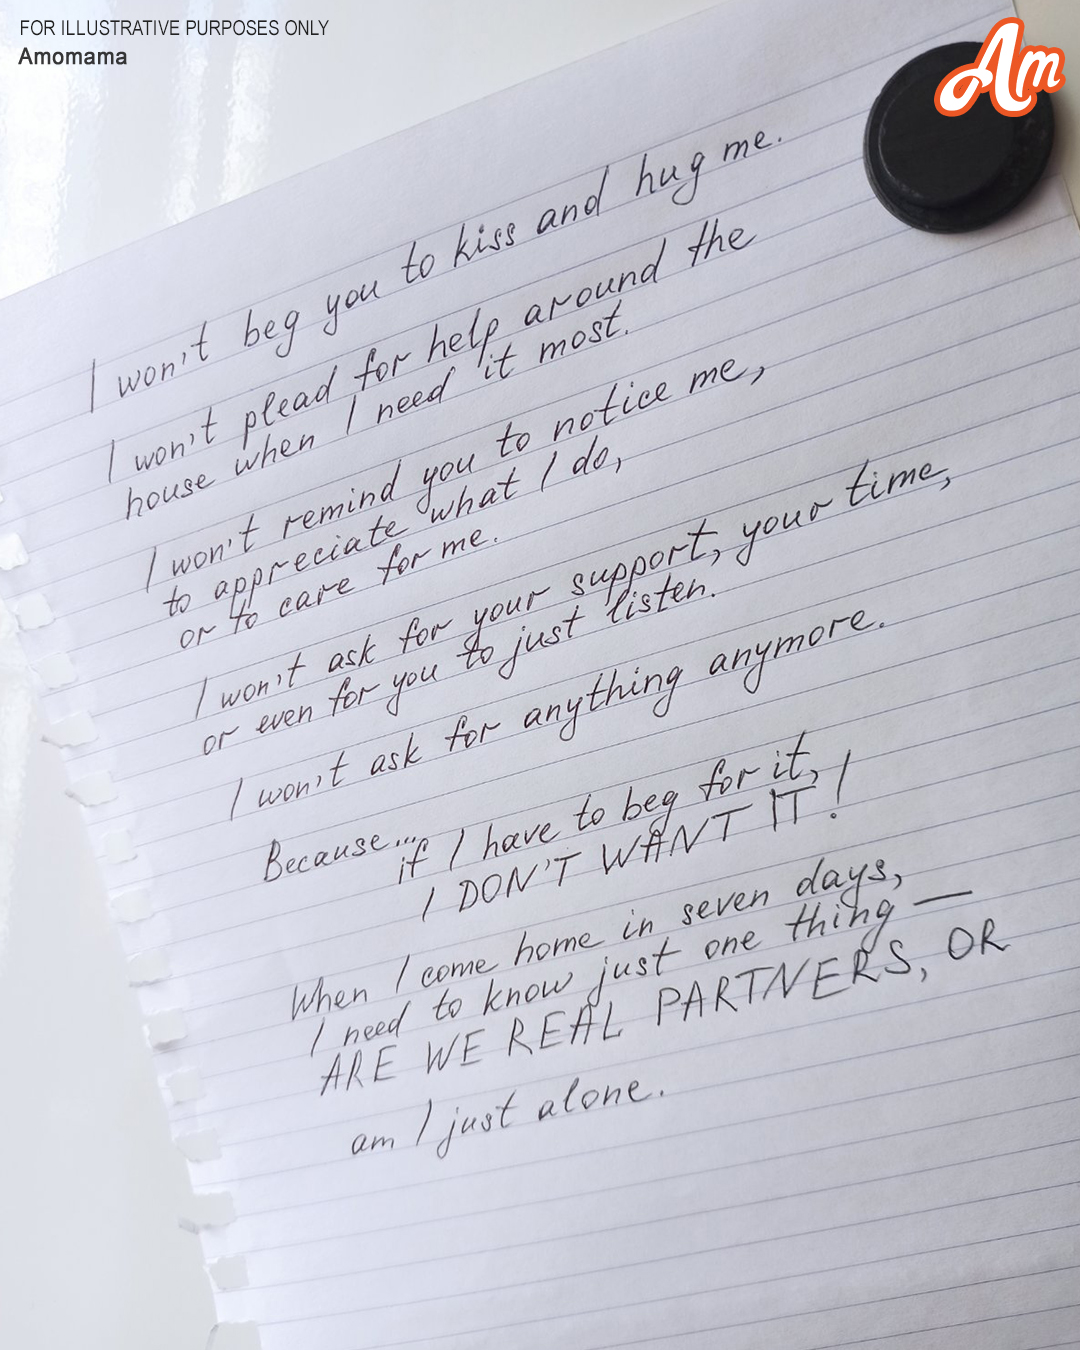 FOR ILLUSTRATIVE PURPOSES ONLY
Amomama
Am
I won't beg you to kiss and hug me.
I won't plead for help around the
house when I need it most.
I won't remind you to notice me,
to appreciate what I do,
or to care for me.
I won't ask for your support, your time,
or even for you to just listen.
I won't ask for anything anymore.
Because...
if I have to beg for it,
I DON'T WANT IT!
When I come home in seven days,
I need to know just one thing —
ARE WE REAL PARTNERS, OR
am I just alone.